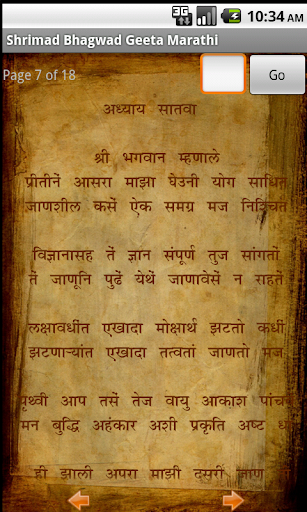 10:34 AM
Shrimad Bhagwad Geeta Marathi
Page 7 of 18
Go
अध्याय सातवा
श्री भगवान म्हणाले
प्रीतीनें आसरा माझा घेउनी योग साधित
जाणशील कसें ऐक समग्र मज निश्चित
विज्ञानासह तें ज्ञान संपूर्ण तुज सांगतों
तें जाणूनि पुढें येथें जाणावेसें न राहते
लक्षावधींत एखादा मोक्षार्थ झटतो कधीं
झटणाऱ्यांत एखादा तत्वतां जाणतो मज
पृथ्वी आप तसें तेज वायु आकाश पांच
मन बुद्धि अहंकार अशी प्रकृति अष्ट
ही झाली अपरा माझी दुसरी जाण